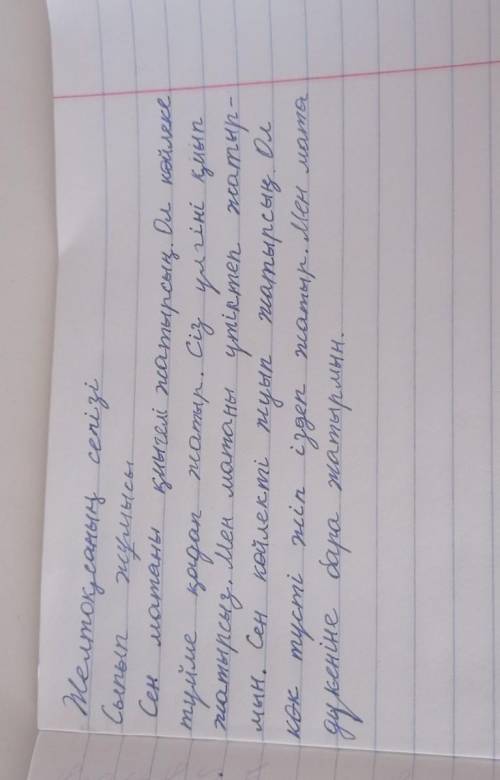 Желтоқсаның сегізі
Сыпып жұмысы
Сен матаны қиыгелі жатырсың. Ол көйлеке
түйме қадап жатыр. Сіз үлгіні қиып
жатырсыз. Мен матаны үтіктеп жатыр-
мын. Сен көйлекті жуып жатырсың. Ол
көк түсті жіп іздеп жатыр. Мен мата
дүкеніне бара жатырмын.